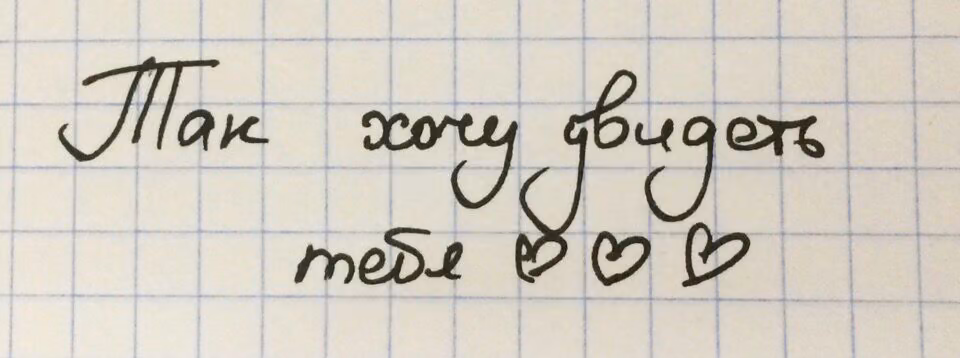 Так хочу увидеть
тебя ♡♡♡